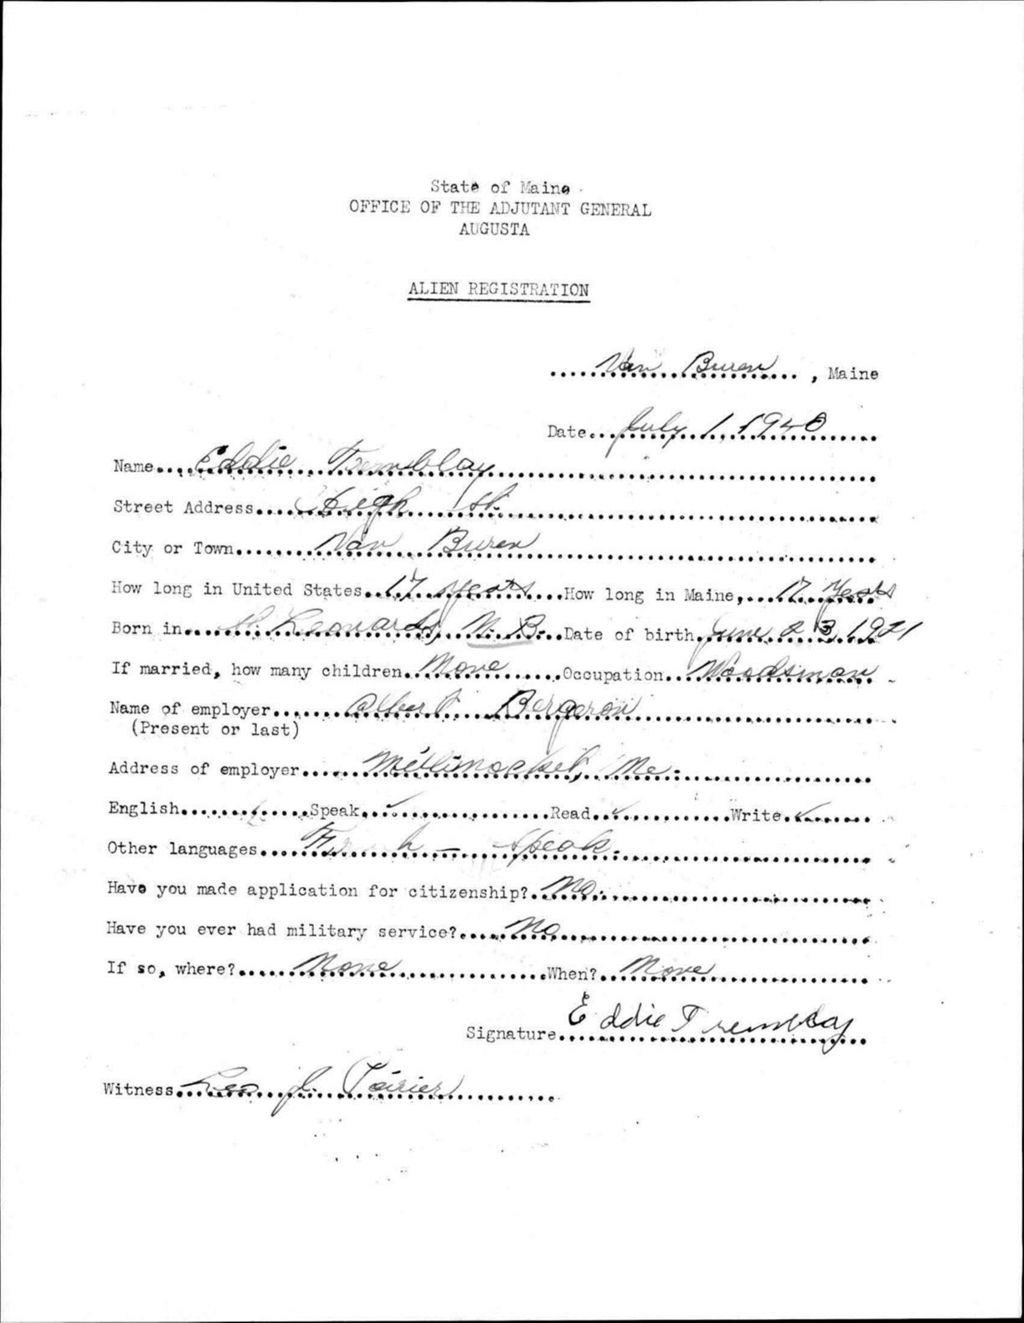 State of Maine
OFFICE OF THE ADJUTANT GENERAL
AUGUSTA
ALIEN REGISTRATION
Van Buren, Maine
Date July 1, 1940
Name Eddie Tremblay
Street Address High St.
City or Town Van Buren
How long in United States 17 years How long in Maine, 17 Years
Born in St. Leonards, N. B. Date of birth June 23, 1921
If married, how many children None Occupation Woodsman
Name of employer Albert Bergeron
(Present or last)
Address of employer Millinocket, Me.
English ✓ Speak ✓ Read ✓ Write ✓
Other languages French - Speak.
Have you made application for citizenship? No.
Have you ever had military service? No
If so, where? None When? None
Signature Eddie Tremblay
Witness Leo J. Poirier